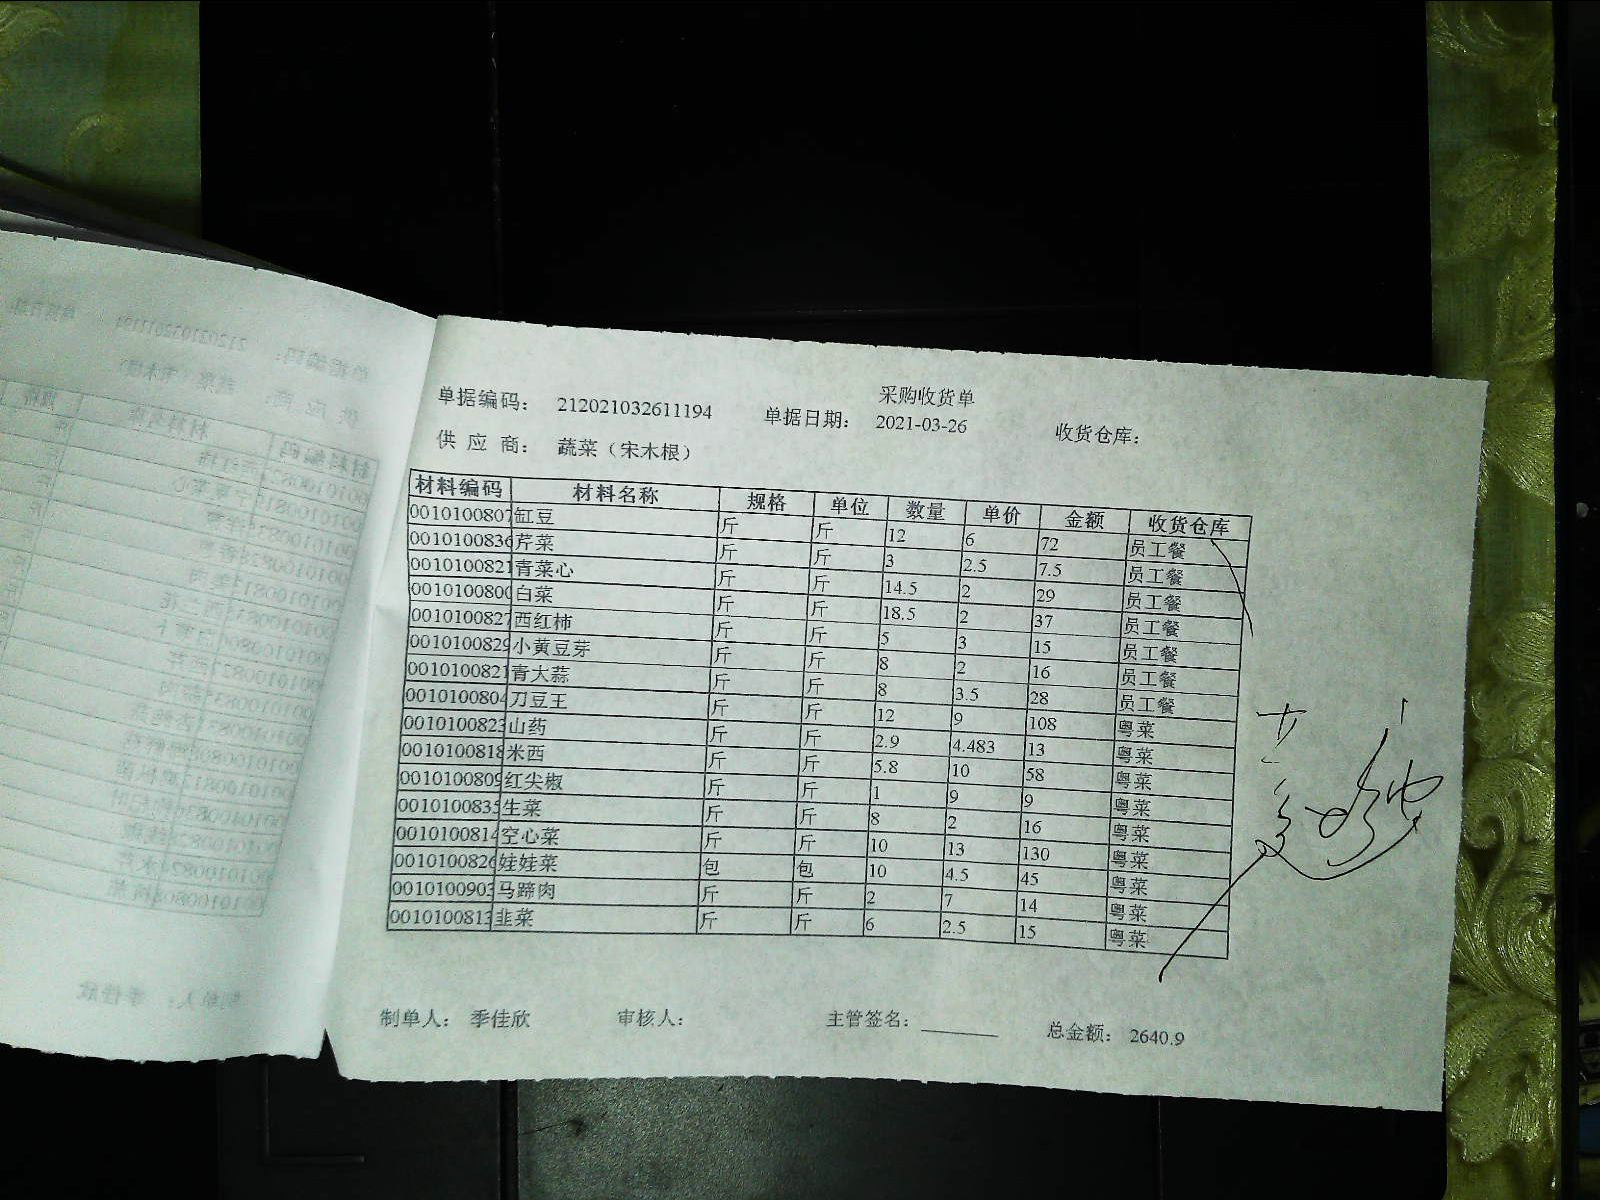 采购收货单
单据编码： 212021032611194 单据日期： 2021-03-26 收货仓库：
供 应 商： 蔬菜（宋木根）
材料编码 材料名称 规格 单位 数量 单价 金额 收货仓库
0010100807 缸豆 斤 斤 12 6 72 员工餐
0010100836 芹菜 斤 斤 3 2.5 7.5 员工餐
0010100821 青菜心 斤 斤 14.5 2 29 员工餐
0010100800 白菜 斤 斤 18.5 2 37 员工餐
0010100827 西红柿 斤 斤 5 3 15 员工餐
0010100829 小黄豆芽 斤 斤 8 2 16 员工餐
0010100821 青大蒜 斤 斤 8 3.5 28 员工餐
0010100804 刀豆王 斤 斤 12 9 108 粤菜
0010100823 山药 斤 斤 2.9 4.483 13 粤菜
0010100818 米西 斤 斤 5.8 10 58 粤菜
0010100809 红尖椒 斤 斤 1 9 9 粤菜
0010100835 生菜 斤 斤 8 2 16 粤菜
0010100814 空心菜 斤 斤 10 13 130 粤菜
0010100826 娃娃菜 包 包 10 4.5 45 粤菜
0010100903 马蹄肉 斤 斤 2 7 14 粤菜
0010100813 韭菜 斤 斤 6 2.5 15 粤菜
制单人： 季佳欣 审核人： 主管签名： 总金额： 2640.9